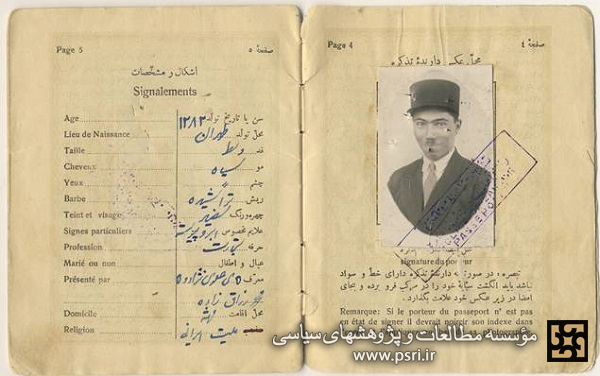 Page 5 صفحهٔ ۵
اشکال و مشخصات
Signalements
Age سن یا تاریخ تولد ۱۲۸۲
Lieu de Naissance محل تولد طهران
Taille قد وسط
Cheveux مو سیاه
Yeux چشم
Barbe ریش تراشیده
Teint et visage چهره ورنگ
Signes particuliers علایم مخصوص ابرو پیوسته
Profession حرفه تجارت
Marié ou non عیال و اطفال
Présenté par معرف
Domicile محل اقامت
Religion مذهب ملیت ایرانی
Page 4 صفحهٔ ٤
محل عکس دارندهٔ تذکره
PASSEPORT
signature du porteur
تبصره در صورتیکه دارندهٔ تذکره دارای خط و سواد
نباشد باید انگشت سبابهٔ خود را در مرکب فرو برده و بجای
امضا در زیر عکس خود علامت بگذارد.
Remarque: Si le porteur du passeport n' est pas
en état de signer il devrait poser son index dans
مؤسسه مطالعات و پژوهشهای سیاسی
www.psri.ir